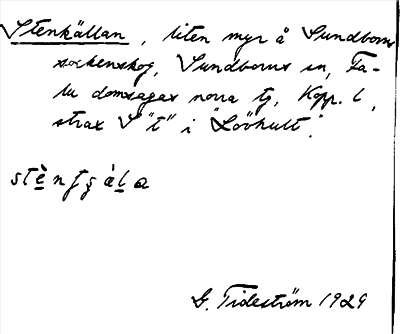 Stenkällan, liten myr å Sundborns
sockenskog, Sundborns sn, Fa-
lu domsagas norra tg, Kopp. l,
strax S "t" i "Lövhult".
G. Tideström 1929